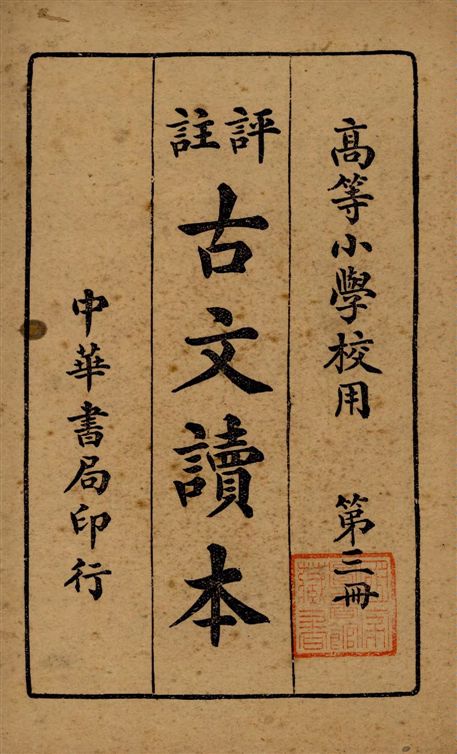 高等小學校用 第三冊
評註
古文讀本
中華書局印行